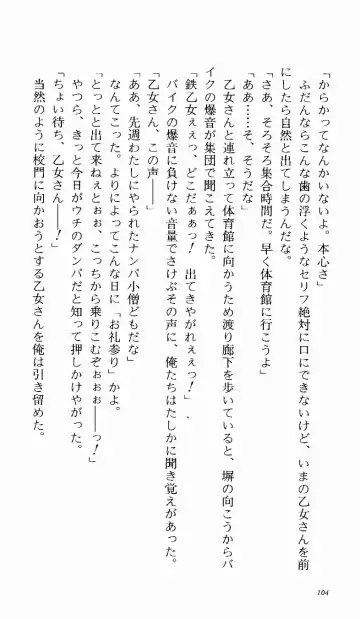 「からかってなんかいないよ。本心さ」
ふだんならこんな歯の浮くようなセリフ絶対に口にできないけど、いまの乙女さんを前
にしたら自然と出てしまうんだな。
「さあ、そろそろ集合時間だ。早く体育館に行こうよ」
「ああ……そ、そうだな」
乙女さんと連れ立って体育館に向かうため渡り廊下を歩いていると、塀の向こうからバ
イクの爆音が集団で聞こえてきた。
「鉄乙女ぇぇっ、どこだぁぁっ！　出てきやがれぇぇっ！」
バイクの爆音に負けない音量でさけぶその声に、俺たちはたしかに聞き覚えがあった。
「乙女さん、この声――」
「ああ、先週わたしにやられたナンパ小僧どもだな」
なんてこった。よりによってこんな日に「お礼参り」かよ。
「とっとと出て来ねぇとぉぉ、こっちから乗りこむぞぉぉぉ――っ！」
やつら、きっと今日がウチのダンパだと知って押しかけやがった。
「ちょい待ち、乙女さん――！」
当然のように校門に向かおうとする乙女さんを俺は引き留めた。
104